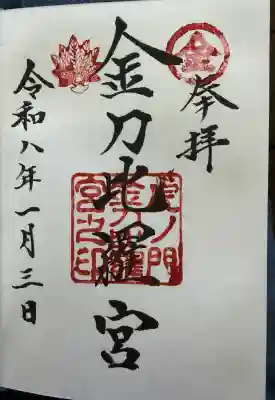 奉拝
金
金刀比羅宮
虎ノ門
金刀比羅
宮之印
令和八年一月三日